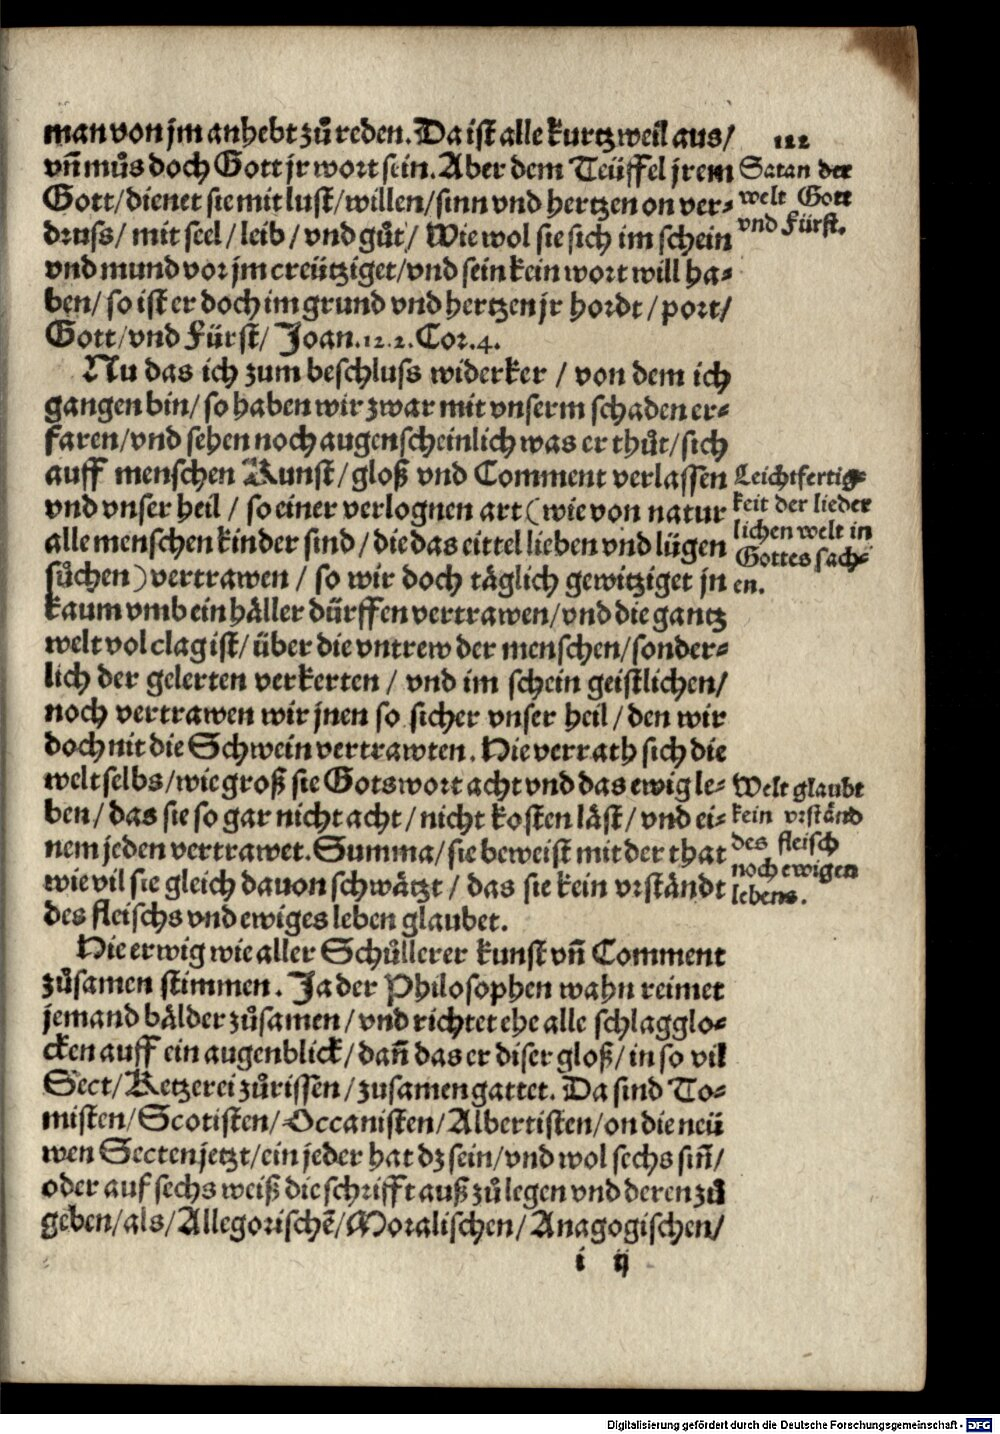 man von jm anhebt zů reden. Da ist alle kurtzweil aus/
vñ můs doch Gott jr wort sein. Aber dem Teüffel jrem
Gott/dienet sie mit lust/willen/sinn vnd hertzen on ver-
druss/ mit seel/leib/ vnd gůt/ Wie wol sie sich im schein
vnd mund vor jm creütziget/vnd sein kein wort will ha-
ben/ so ist er doch im grund vnd hertzen jr hordt/port/
Gott/vnd Fürst/ Joan.12.2.Cor.4.
Nu das ich zum beschluss widerker / von dem ich
gangen bin/ so haben wir zwar mit vnserm schaden er-
faren/vnd sehen noch augenscheinlich was er thůt/sich
auff menschen Kunst/gloß vnd Comment verlassen
vnd vnser heil / so einer verlognen art (wie von natur
alle menschen kinder sind/die das eittel lieben vnd lügen
sůchen) vertrawen / so wir doch täglich gewitziget jn
kaum vmb ein häller dürffen vertrawen/vnd die gantz
welt vol clag ist/ über die vntrew der menschen/sonder-
lich der gelerten verkerten / vnd im schein geistlichen/
noch vertrawen wir jnen so sicher vnser heil/den wir
doch nit die Schwein vertrawten. Hie verrath sich die
welt selbs/wie groß sie Gots wort acht vnd das ewig le-
ben/das sie so gar nicht acht/nicht kosten läst/vnd ei-
nem jeden vertrawet. Summa/sie beweist mit der that
wie vil sie gleich dauon schwätzt / das sie kein vrständt
des fleischs vnd ewiges leben glaubet.
Hie erwig wie aller Schůllerer kunst vñ Comment
zůsamen stimmen. Ja der Philosophen wahn reimet
jemand bälder zůsamen/vnd richtet ehe alle schlagglo-
cken auff ein augenblick/dañ das er diser gloß/in so vil
Sect/Ketzerei zůrissen/zusamen gattet. Da sind To-
misten/Scotisten/Occanisten/Albertisten/on die neü
wen Secten jetzt/ein jeder hat dz sein/vnd wol sechs siñ/
oder auf sechs weiß die schrifft auß zů legen vnd deren zů
geben/als/Allegorischē/Moralischen/Anagogischen/
i ij
122
Satan der
welt Gott
vnd Fürst.
Leichtfertig-
keit der lieder
lichen welt in
Gottes sach-
en.
Welt glaubt
kein vrständ
des fleisch
noch ewigen
lebens.
Digitalisierung gefördert durch die Deutsche Forschungsgemeinschaft - DFG